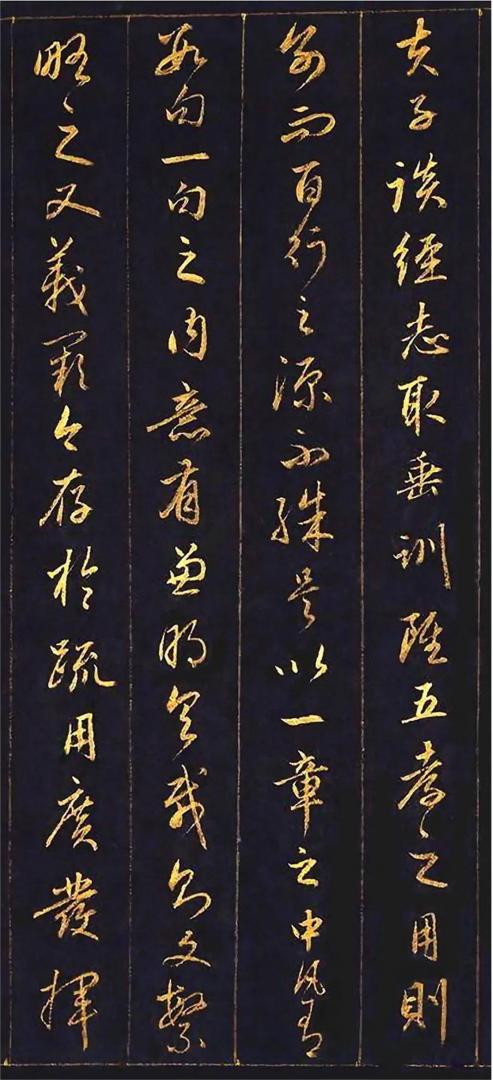 夫子談經志取垂訓雖五孝之用則
別而百行之源不殊是以一章之中凡有
數句一句之內意有兼明具載則文繁
略之又義闕今存於疏用廣發揮